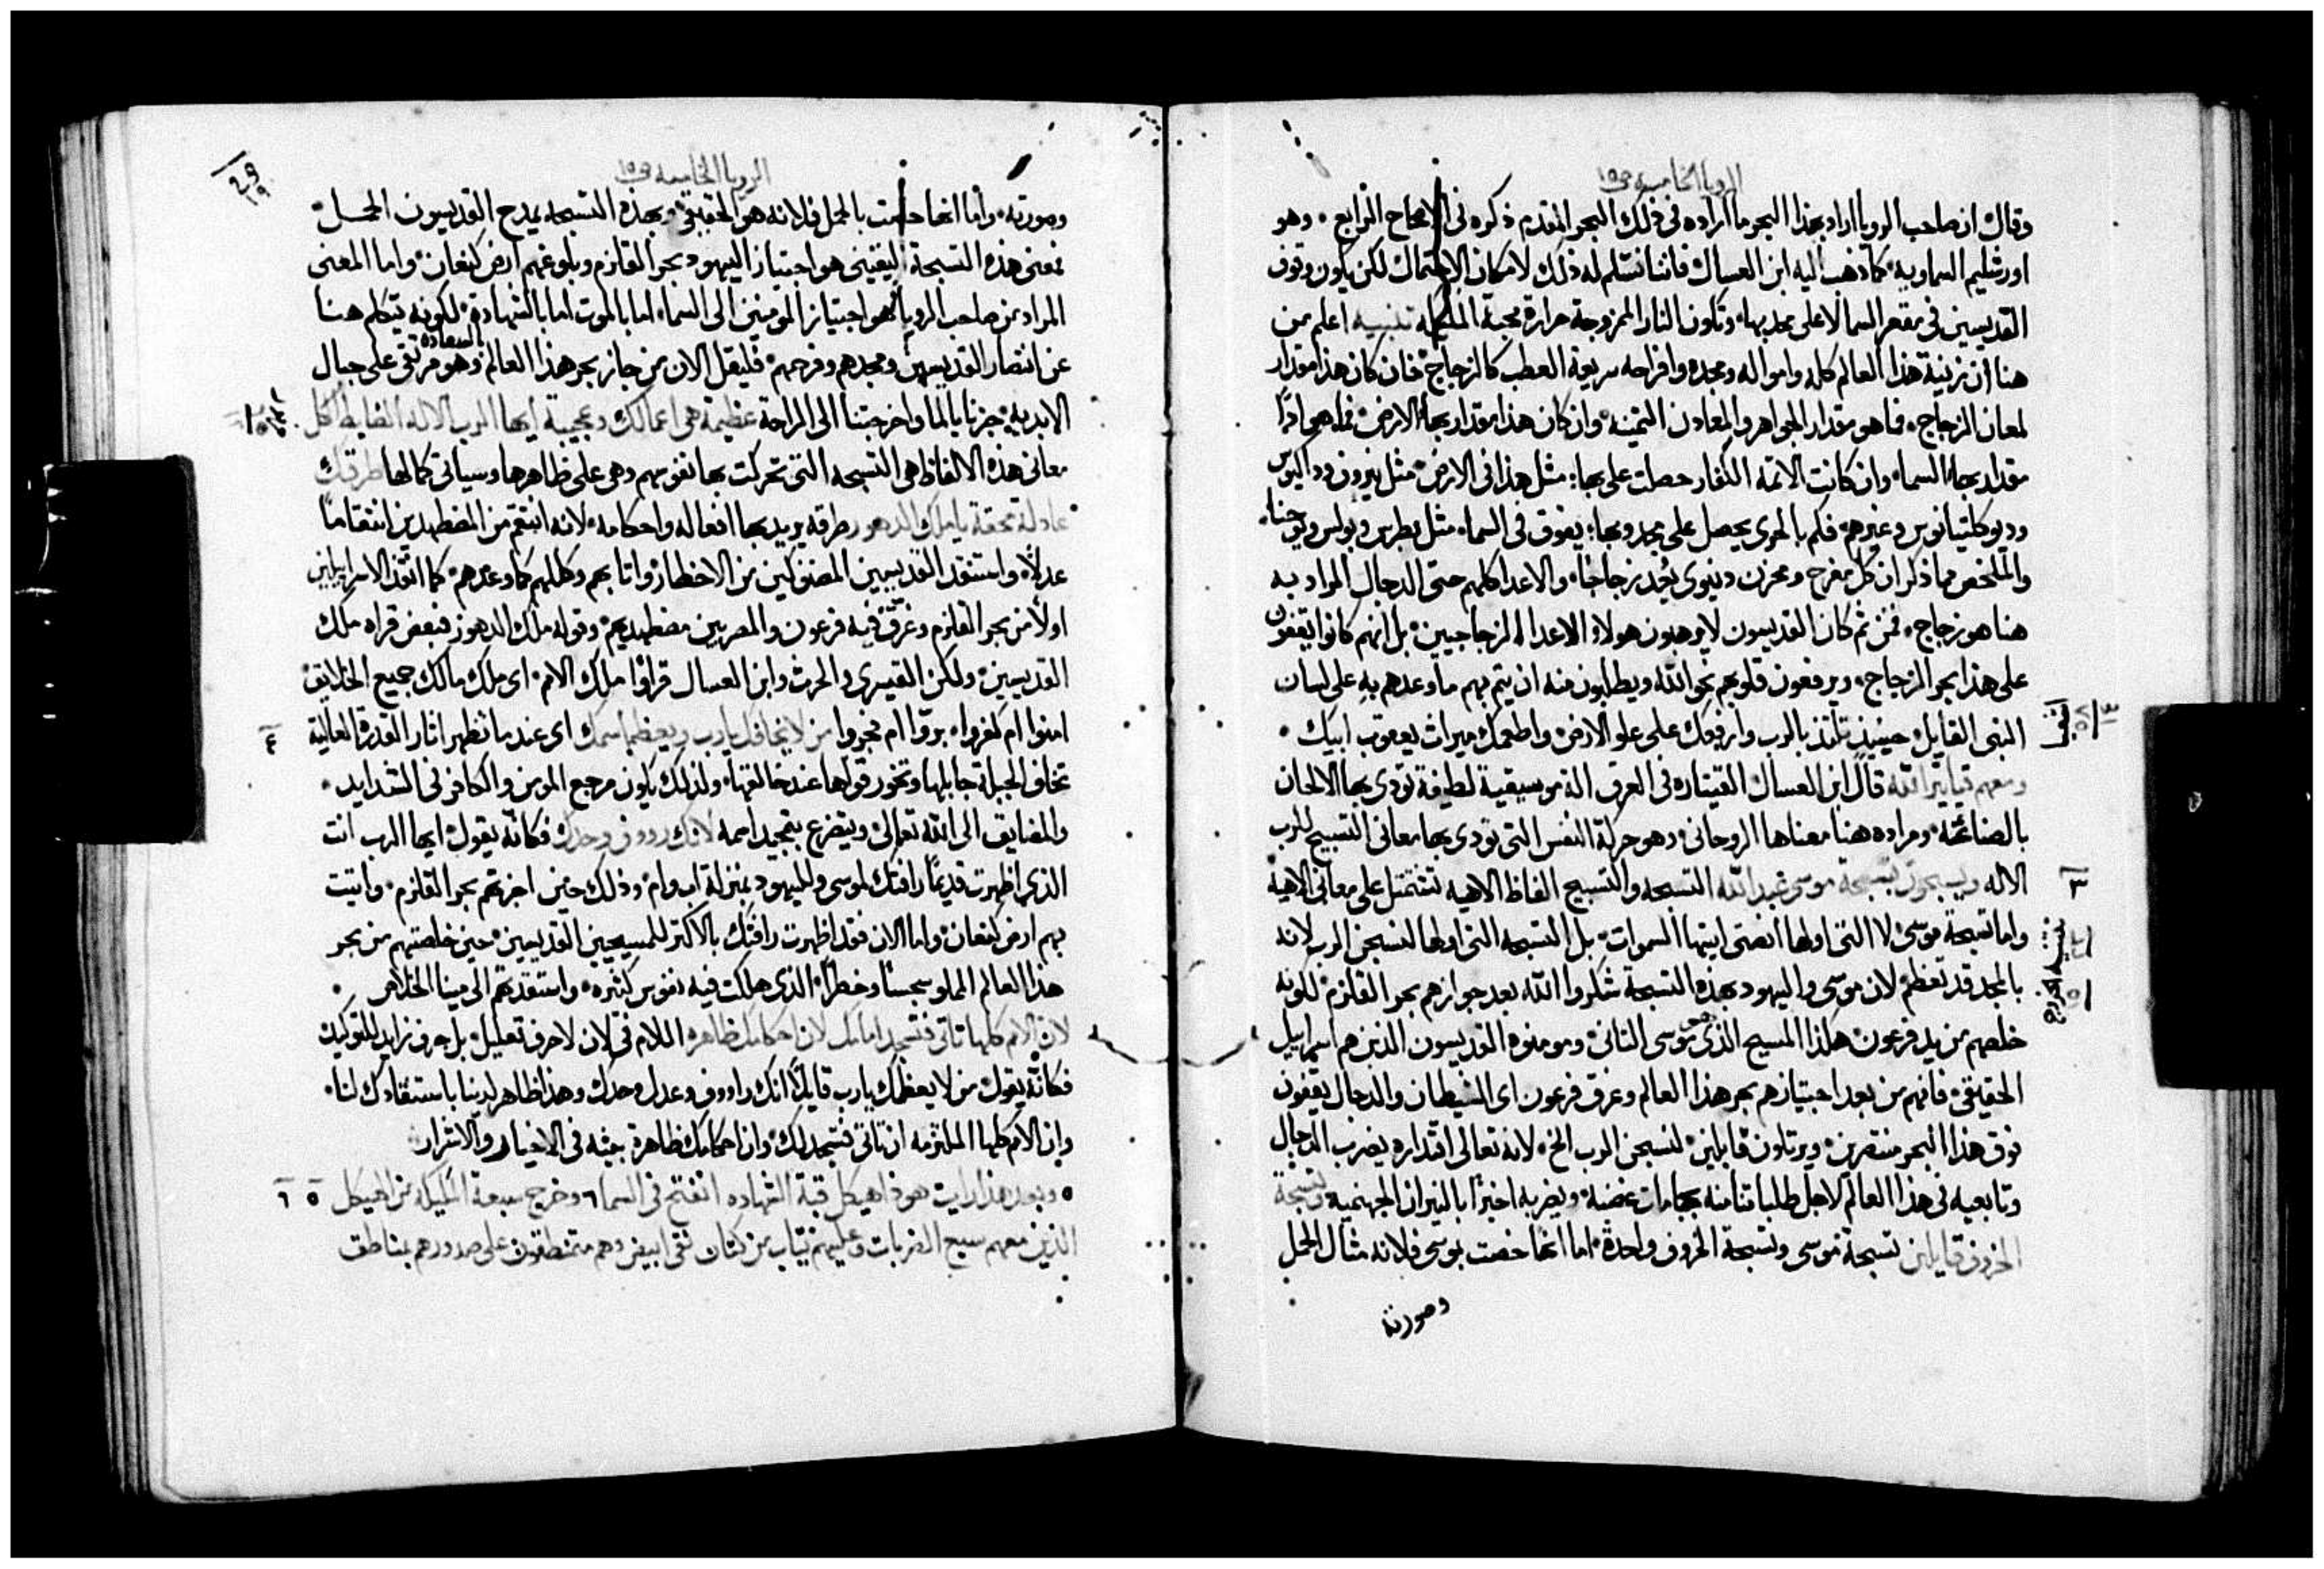 الرويا الخامسه ص١٥
وقال ان صاحب الرويا اراد بهذا البحر ما اراده في ذلك البحر المقدم ذكره في الاصحاح الرابع. وهو
اورشليم السماويه. كما ذهب اليه ابن العسال فاننا نسلم له ذلك لامكان الاحتمال لكن يكون وقوف
القديسين في مقعر السما لا على محدبها. وتكون النار الممزوجة حرارة محبة الملكه تنبيه اعلم من
هنا ان زينة هذا العالم كله وامواله ومجده وافراحه سريعة العطب كالزجاج. فان كان هذا مقدار
لمعان الزجاج. فما هو مقدار الجواهر والمعادن الثمينه. وان كان هذا مقدار بهاء الارض. فما هي اذًا
مقدار بهاء السماء. وان كانت الائمه الكفار حصلت على بهاء مثل هذا في الارض. مثل نيرون وداكيوس
وديوكلتيانوس وغيرهم. فكم بالحري يحصل على مجد وبهاء يفوق في السماء مثل بطرس وبولس ويوحنا.
والملخص مما ذكر ان كل مفرح ومحزن دنيوى يُعد زجاجًا. والاعدا كلهم حتى الدجال المراد به
هنا هو زجاج. فمن ثم كان القديسون لا يرهبون هولاء الاعداء الزجاجيين. بل انهم كانوا يقفون
على هذا بحر الزجاج. ويرفعون قلوبهم نحو الله ويطلبون منه ان يتم بهم ما وعدهم به على لسان
النبي القايل حينيذ تلتذ بالرب وارفعك على علو الارض. واطعمك ميراث يعقوب ابيك.
ومعهم قياثير الله قال ابن العسال القيثاره في العرف الة موسيقية لطيفة تودى بها الالحان
بالصناعه. ومراده هنا معناها الروحاني. وهو حركة النفس التي تودى بها معاني التسبيح للرب
٣ الاله ويسبحون تسبحة موسى عبد الله التسبحه والتسبيح الفاظ الاهيه تشتمل على معاني الاهية
واما تسبحة موسى لا التي اولها انصتي ايتها السموات. بل التسبحه التي اولها لنسبحن الرب لانه
بالمجد قد تعظم. لان موسى واليهود بهذه التسبحة شكروا الله بعد جوازهم بحر القلزم. لكونه
خلصهم من يد فرعون. هكذا المسيح الذي هو موسى الثاني. ومومنوه القديسون الذين هم اسراييل
الحقيقي. فانهم من بعد اجتيازهم بحر هذا العالم وغرق فرعون اى الشيطان والدجال يقفون
فوق هذا البحر منتصرين. ويرتلون قايلين. لنسبحن الرب الخ. لانه تعالى اقتداره يضرب الدجال
وتابعيه في هذا العالم لاجل طلباتنا منه بجامات غضبه. ويضربه اخيرًا بالنيران الجهنميه وتسبحة
الخروف قايلين تسبحة موسى وتسبحة الخروف واحدة. اما انها خصت بموسى فلانه مثال الحمل
وصورته
الرويا الخامسه ص١٥
وصورته. واما انها خصت بالحمل فلانه هو الحقيقي. وبهذه التسبحه يمدح القديسون الحمـــل.
فمعنى هذه التسبحة اليقيني هو اجتياز اليهود بحر القلزم وبلوغهم ارض كنعان. واما المعنى
المراد من صاحب الرويا فهو اجتياز المومنين الى السماء. اما بالموت اما بالشهادة. لكونه يتكلم هنا
عن انتصار القديسين ومجدهم وفرحهم. فليقل الان من جاز بحر هذا العالم وهو مرتقي على جبال السعادة
الابديه. جزنا بالما واخرجتنا الى الراحة عظيمة هي اعمالك وعجيبة ايها الرب الاله الضابط الكل
معاني هذه الالفاظ هي التسبحه التي تحركت بها نفوسهم وهي على ظاهرها وسياتي كمالها طرقك
عادلة محقة يا ملك الدهور وطرقه يريد بها افعاله واحكامه. لانه انتقم من المضطهدين انتقامًا
عدلاً. واستنقذ القديسين المضنوكين من الاخطار. واثابهم وكللهم كما وعدهم. كما انقذ الاسراييليين
اولاً من بحر القلزم وغرق فيه فرعون والمصريين مضطهديهم. وقوله ملك الدهور فبعض قراه ملك
القديسين. ولكن القيسرى والحرث وابن العسال قراوا ملك الامم. اى ملك مالك جميع الخلايق.
٤ امنوا ام كفروا. بروا ام فجروا من لا يخافك يا رب ويعظم اسمك اى عندما تظهر اثار القدرة العالية
تخاف الجبلة جابلها وتخور قواها عند خالقها. ولذلك يكون مرجع المومن والكافر في الشدايد.
والمضايق الى الله تعالى. ويتضرع بتمجيد اسمه لانك رووف وحدك فكانه يقول. ايها الرب انت
الذى اظهرت قديمًا رافتك لموسى ولليهود بمنزلة اب وام. وذلك حين اجزتهم بحر القلزم. واتيت
بهم ارض كنعان. واما الان فقد اظهرت رافتك بالاكثر للمسيحيين القديسين. حين خلصتهم من بحر
هذا العالم المملو سجسًا وخطرًا. الذى هلكت فيه نفوس كثيره. واستنقذتهم الى مينا الخلاص.
لان الامم كلها تاتي فتسجد امامك لان احكامك ظاهره اللام في لان لا حرف تعليل. بل حرف زايد للتوكيد
فكانه يقول من لا يعظمك يا رب قايلاً. انك رااووف وعدل وحدك وهذا ظاهر لدينا باستنقاذك لنا.
وان الامم كلها الملتزمه ان تاتي فتسجد لك. وان احكامك ظاهرة جيئه في الاخيار والاشرار.
٥ ٦ وبعد هذا رايت هوذا هيكل قبة الشهاده انفتح في السما ٦ وخرج سبعة املايكه من الهيكل
الذين معهم سبع الضربات وعليهم ثياب من كتان نقي ابيض وهم متمنطقون على صدورهم بمناطق